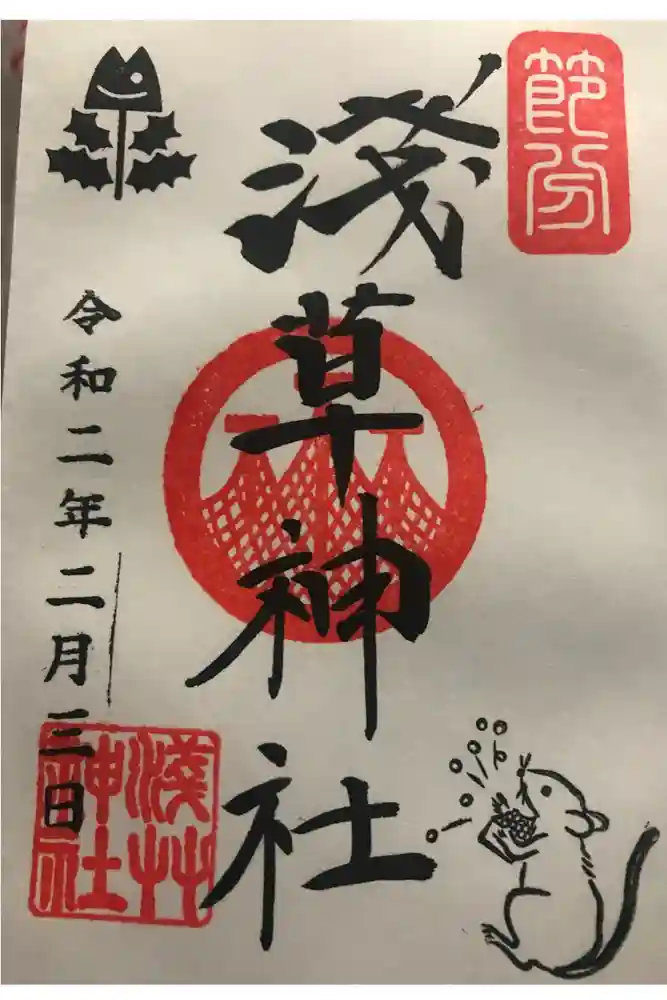 節分
淺草神社
令和二年二月三日
淺艸神社